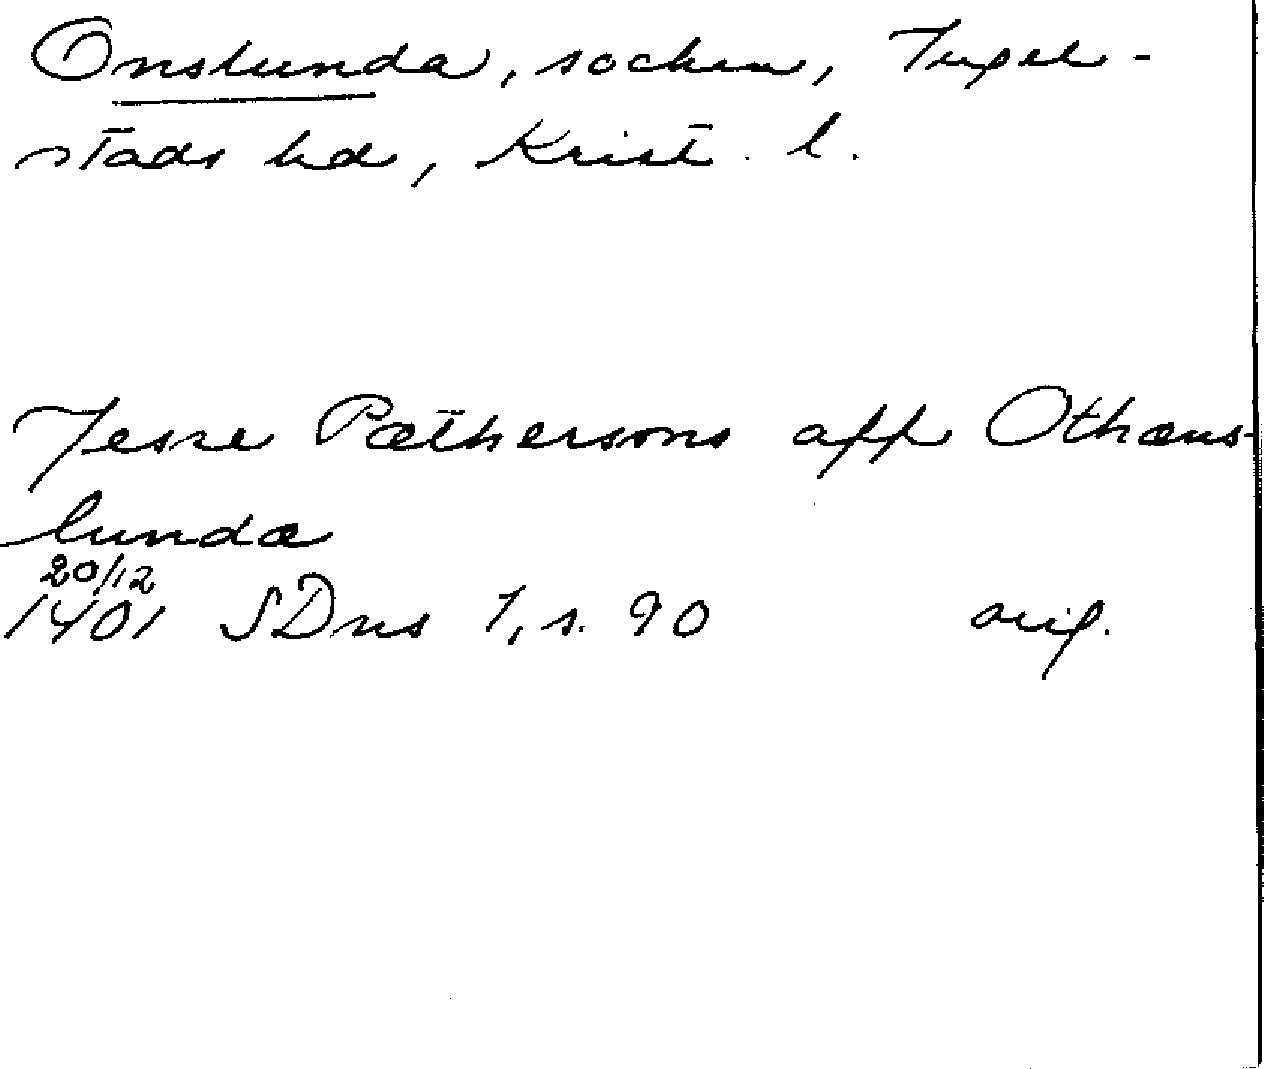 Onslunda, socken, Ingel-
stads hd, Krist. l.
Jesse Pæthersons aff Othæns-
lunda
20/12
1401 SDns 1, s. 90 orig.